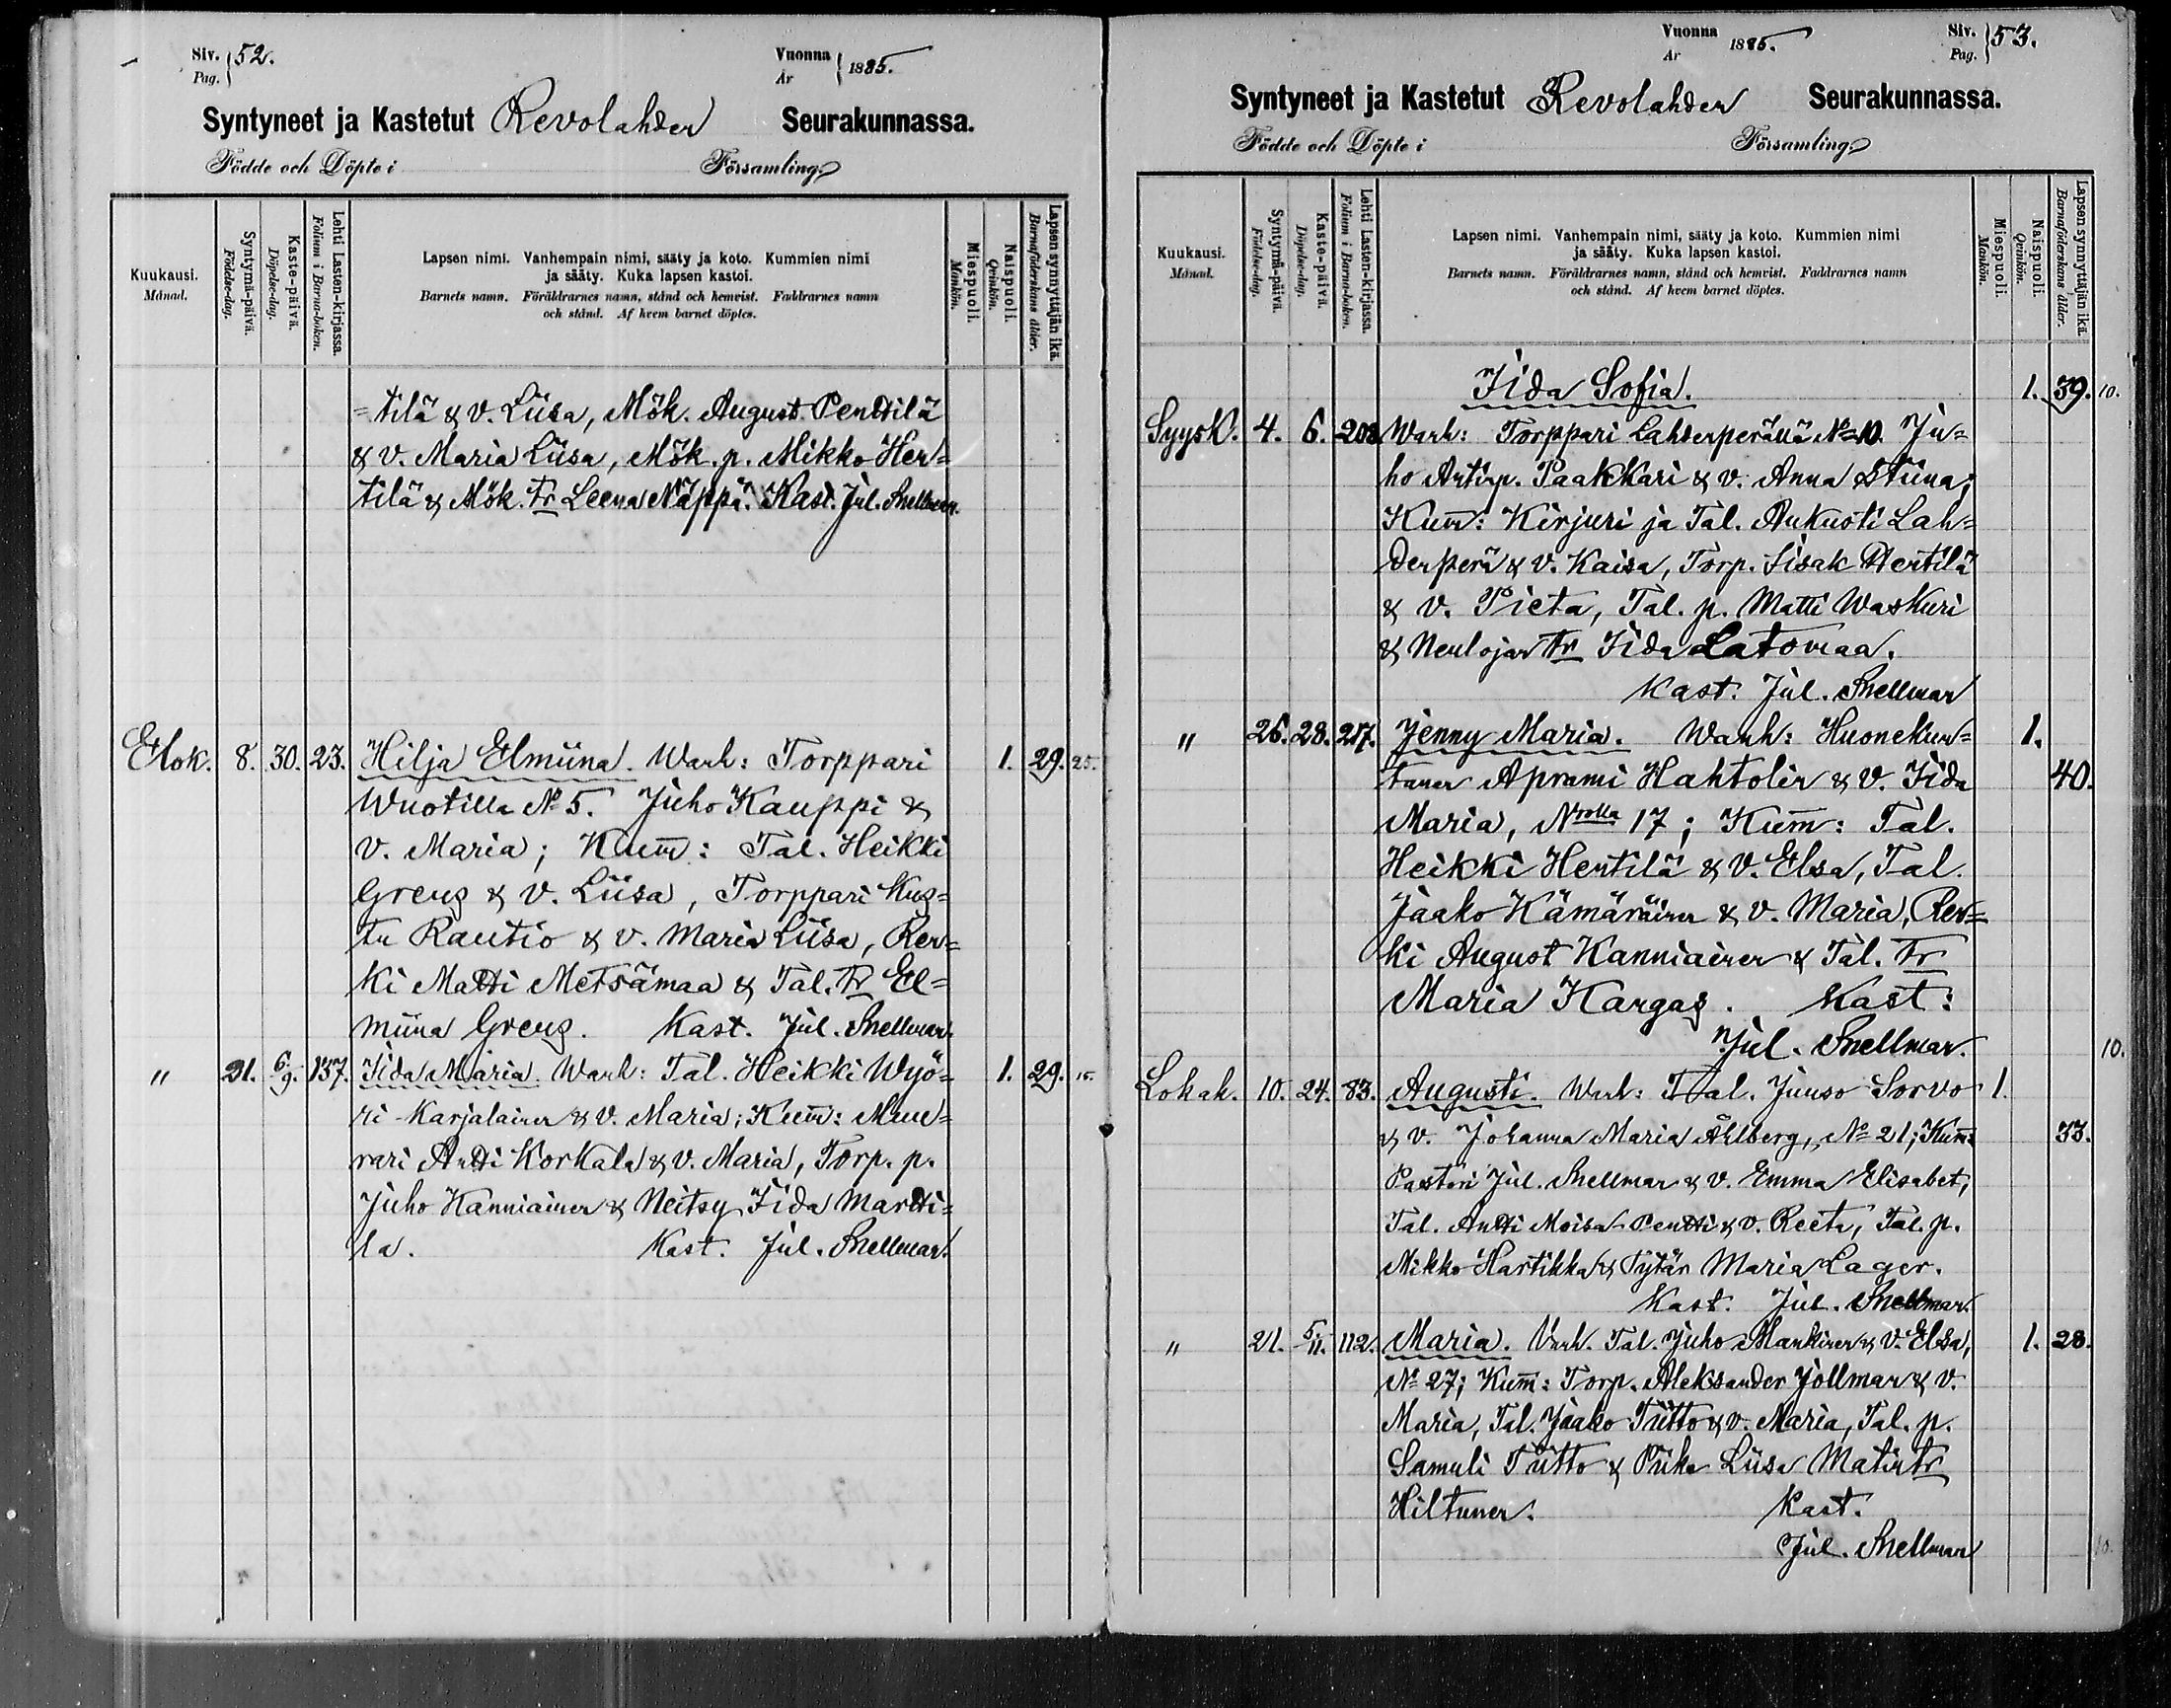 Siv. 52.
Pag.
Vuonna 1885.
År
Syntyneet ja Kastetut Revolahden Seurakunnassa.
Födde och Döpte i Församling.
Kuukausi.
Månad.
Syntymä-päivä.
Födelse-dag.
Kaste-päivä.
Döpelse-dag.
Lehti Lasten-kirjassa.
Folium i Barna-boken.
Lapsen nimi. Vanhempain nimi, sääty ja koto. Kummien nimi
ja sääty. Kuka lapsen kastoi.
Barnets namn. Föräldrarnes namn, stånd och hemvist. Faddrarnes namn
och stånd. Af hvem barnet döptes.
Miespuoli.
Mankön.
Naispuoli.
Qvinkön.
Lapsen synnyttäjän ikä.
Barnaföderskans ålder.
=tilä & v. Liisa, Mök. August Penttilä
& v. Maria Liisa, Mök. p. Mikko Her=
tilä & Mök. tr Leena Näppä. Kast. Jul. Snellman.
Elok. 8. 30. 23. Hilja Elmiina. Wanh: Torppari 1. 29. 25.
Wuotilla No 5. Juho Kauppi &
v. Maria; Kum̄: Tal. Heikki
Greus & v. Liisa, Torppari Kus=
tu Rautio & v. Maria Liisa, Ren=
ki Matti Metsämaa & Tal. tr El=
miina Greus. Kast. Jul. Snellman.
" 21. 6/9. 157. Iida Maria. Wanh: Tal. Heikki Wyö= 1. 29. 15.
ri-Karjalainen & v. Maria; Kum̄: Muu=
rari Antti Korkala & v. Maria, Torp. p.
Juho Kanniainen & Neitsy Iida Martti=
la. Kast. Jul. Snellman.
Vuonna 1885.
År
Siv. 53.
Pag.
Syntyneet ja Kastetut Revolahden Seurakunnassa.
Födde och Döpte i Församling.
Kuukausi.
Månad.
Syntymä-päivä.
Födelse-dag.
Kaste-päivä.
Döpelse-dag.
Lehti Lasten-kirjassa.
Folium i Barna-boken.
Lapsen nimi. Vanhempain nimi, sääty ja koto. Kummien nimi
ja sääty. Kuka lapsen kastoi.
Barnets namn. Föräldrarnes namn, stånd och hemvist. Faddrarnes namn
och stånd. Af hvem barnet döptes.
Miespuoli.
Mankön.
Naispuoli.
Qvinkön.
Lapsen synnyttäjän ikä.
Barnaföderskans ålder.
Iida Sofia. 1. 39. 10.
Syysk. 4. 6. 208 Wanh: Torppari Lahdenperällä No 10. Ju=
ho Antinp. Paakkari & v. Anna Stiina;
Kum̄: Kirjuri ja Tal. Aukusti Lah=
denperä & v. Kaisa, Torp. Iisak Hertilä
& v. Pieta, Tal. p. Matti Waskuri
& Neulojan tr Iida Latomaa.
Kast. Jul. Snellman
" 26. 28. 217. Jenny Maria. Wanh: Huonekun= 1.
tanen Aprami Hahtolin & v. Iida 40.
Maria, Nrolla 17; Kum̄: Tal.
Heikki Hertilä & v. Elsa, Tal.
Jaako Kämäräinen & v. Maria, Ren=
ki August Kanniainen & Tal. tr
Maria Kargas. Kast:
Jul. Snellman. 10.
Lokak. 10. 24. 83. Augusti. Wanh: Tal. Juuso Sorvo 1.
& v. Johanna Maria Åhlberg, No 21; Kum̄: 33.
Pastori Jul. Snellman & v. Emma Elisabet,
Tal. Antti Moisa-Pentti & v. Reeta, Tal. p.
Mikko Hartikka & Tytär Maria Lager.
Kast. Jul. Snellman.
" 21. 5/11. 112. Maria. Vanh. Tal. Juho Mankinen & v. Elsa, 1. 28.
No 27; Kum̄: Torp. Aleksander Jollman & v.
Maria, Tal. Jaako Tuitto & v. Maria, Tal. p.
Samuli Tuitto & Piika Liisa Matintr
Hiltunen. Kast.
Jul. Snellman 10.